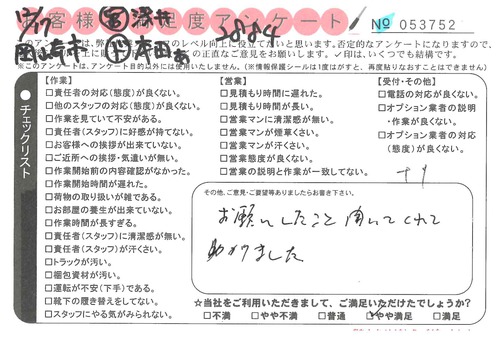 お客様満足度アンケート No 053752
12/17 営 深井 2884
岡崎市 作 本田
このアンケートは、弊社業務のレベル向上に役立てたいと思います。否定的なアンケートになりますので、
お客様の正直なご意見をお願いします。✓印は、いくつでも結構です。
※このアンケートは、アンケート目的以外には使用いたしません。(※情報保護シールは1度はがすと、再度貼りなおすことはできません)
チェックリスト
【作業】
□責任者の対応(態度)が良くない。
□他のスタッフの対応(態度)が良くない。
□作業を見ていて不安がある。
□責任者(スタッフ)に好感が持てない。
□お客様への挨拶が出来ていない。
□ご近所への挨拶・気遣いが無い。
□作業開始前の内容確認がなかった。
□作業開始時間が遅れた。
□荷物の取り扱いが雑である。
□お部屋の養生が出来ていない。
□作業時間が長すぎる。
□責任者(スタッフ)に清潔感が無い。
□責任者(スタッフ)が汗くさい。
□トラックが汚い。
□梱包資材が汚い。
□運転が不安(下手)である。
□靴下の履き替えをしてない。
□スタッフにやる気がみられない。
【営業】
□見積もり時間に遅れた。
□見積もり時間が長い。
□営業マンに清潔感が無い。
□営業マンが煙草くさい。
□営業マンが汗くさい。
□営業態度が良くない。
□営業の説明と作業が一致してない。
【受付・その他】
□電話の対応が良くない。
□オプション業者の説明
・作業が良くない。
□オプション業者の対応
(態度)が良くない。
その他、ご意見・ご要望等ありましたらお書き下さい。
お願いしたこと聞いてくれて
助かりました
☆当社をご利用いただきまして、ご満足いただけたでしょうか?
□不満 □やや不満 □普通 □やや満足 □満足